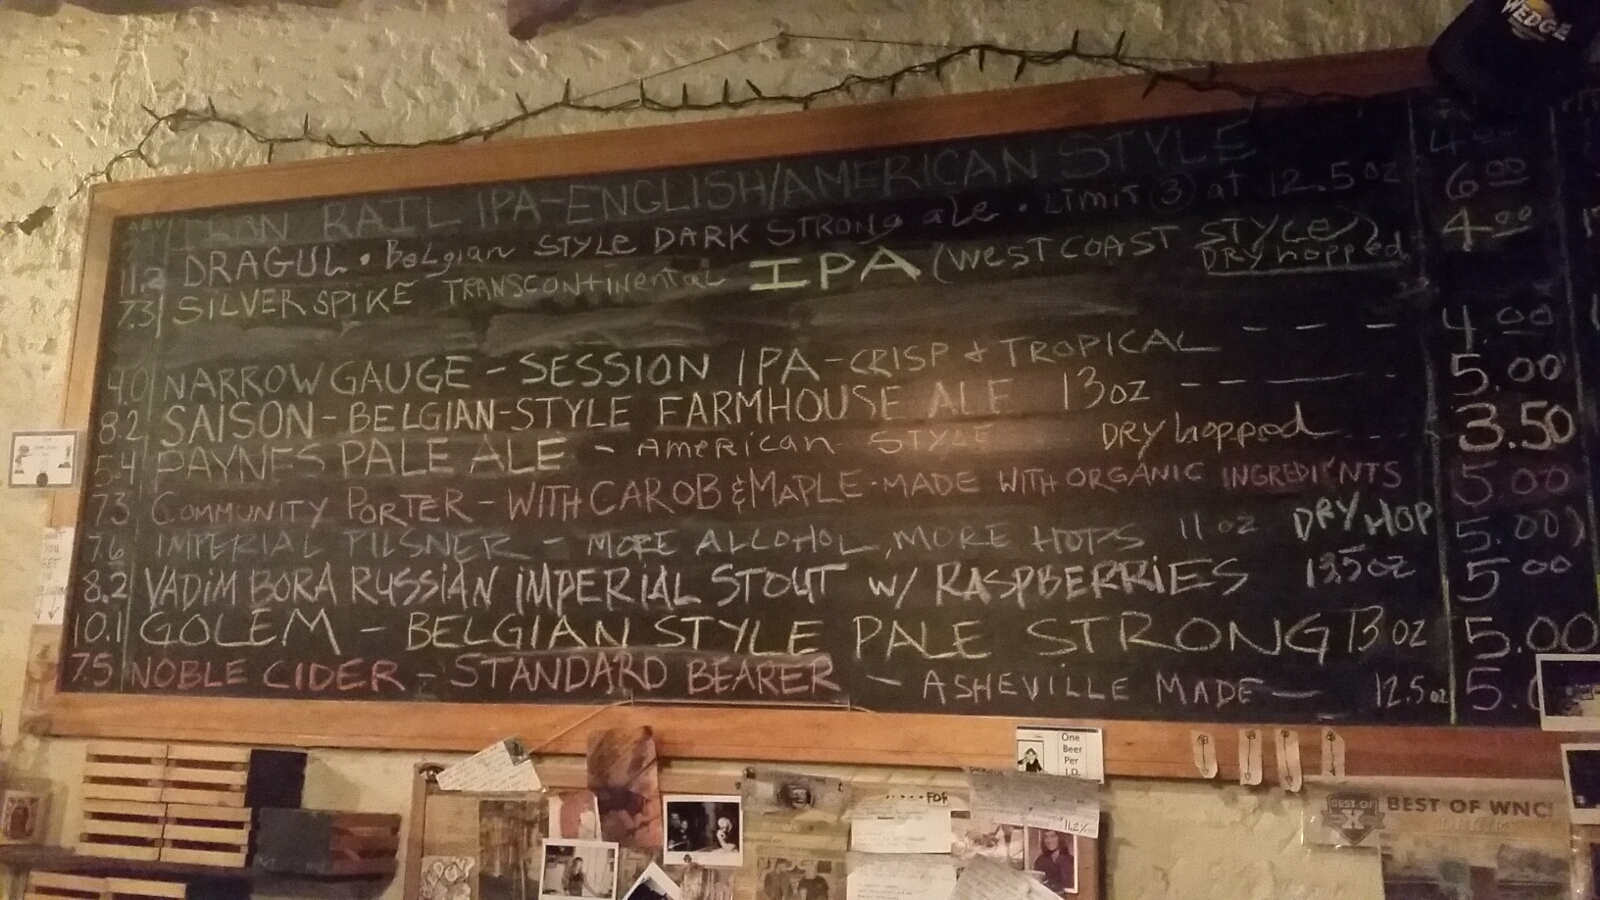 WEDGE
ABV
IRON RAIL IPA-ENGLISH/AMERICAN STYLE 4.00
11.2 DRAGUL • Belgian STYLE DARK STRONG ale • Limit 3 at 12.5oz 6.00
7.3 SILVER SPIKE TRANSCONtinental IPA (WEST COAST STYLE) DRY hopped 4.00
4.0 NARROW GAUGE - SESSION IPA - CRISP & TROPICAL - - - 4.00
8.2 SAISON - BELGIAN-STYLE FARMHOUSE ALE 13oz - - - - - 5.00
5.4 PAYNES PALE ALE - American STYLE DRY hopped 3.50
7.3 COMMUNITY PORTER - WITH CAROB & MAPLE - MADE WITH ORGANIC INGREDIENTS 5.00
7.6 IMPERIAL PILSNER - MORE ALCOHOL, MORE HOPS 11oz DRY HOP 5.00)
8.2 VADIM BORA RUSSIAN IMPERIAL STOUT w/ RASPBERRIES 13.5oz 5.00
10.1 GOLEM - BELGIAN STYLE PALE STRONG 13oz 5.00
7.5 NOBLE CIDER - STANDARD BEARER - ASHEVILLE MADE - 12.5oz 5.0
WHAT
YOU
GET
One
Beer
Per
I.D.
FOR
BEST OF
BEST OF WNC!